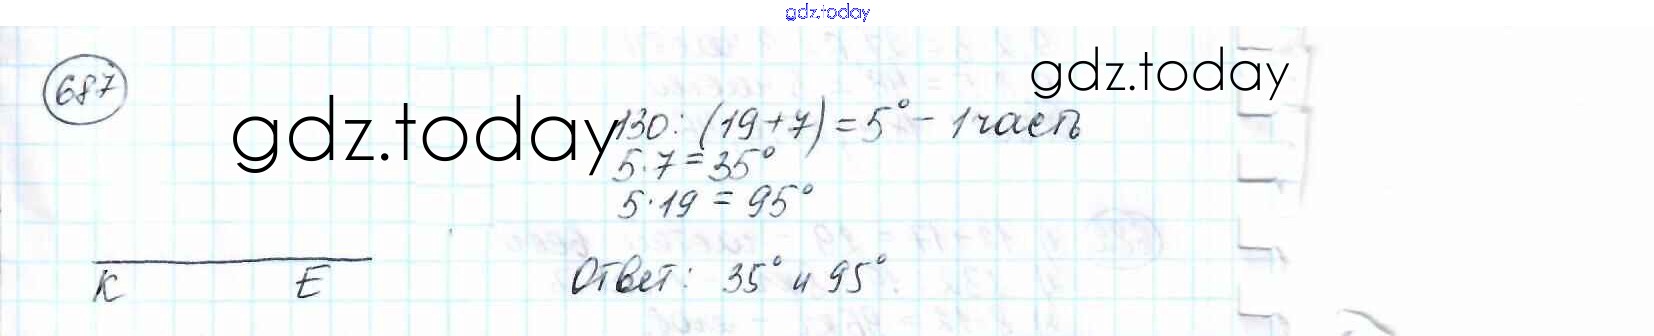 gdz.today
687
gdz.today
gdz.today
130 : (19+7) = 5° - 1 часть
5·7 = 35°
5·19 = 95°
K E
Ответ: 35° и 95°